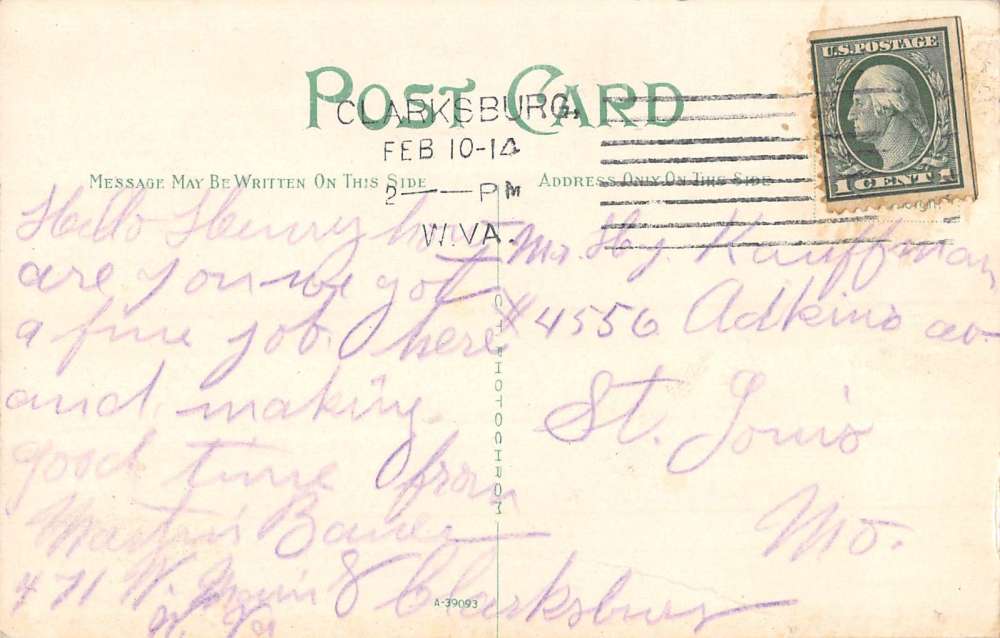 POST CARD
CLARKSBURG,
FEB 10-14
2 — PM
W.VA.
U.S. POSTAGE
1 CENT 1
MESSAGE MAY BE WRITTEN ON THIS SIDE
ADDRESS ONLY ON THIS SIDE
Hello Henry how
are you we got
a fine job. here
and making
good time from
Martin
471 W. Clarksburg
W. Va
C. T. PHOTOCHROM
A-39093
Mr. Hy. Kauffman
4556 Adkins av
St. Louis
Mo.